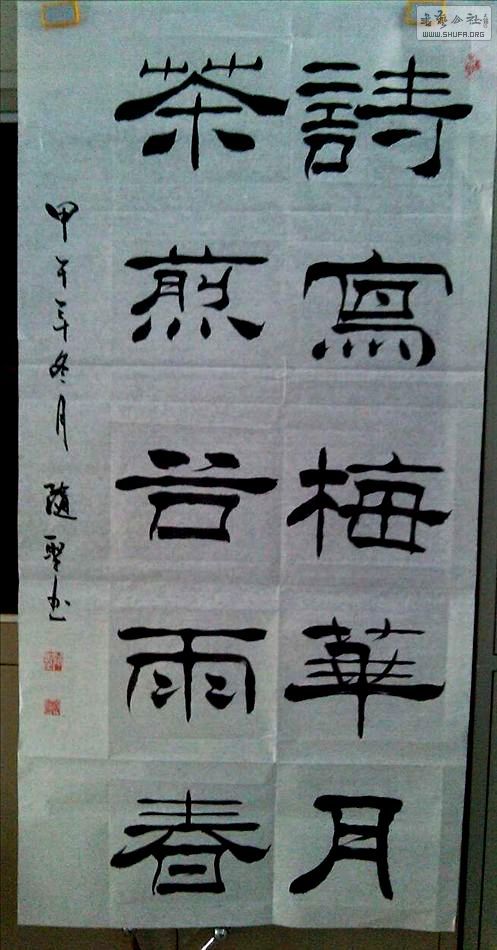 詩寫梅華月
茶煎谷雨春
甲午年冬月 隨聖书
书艺公社
WWW.SHUFA.ORG